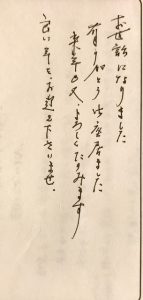 お世話になりました
有り加とう御座居ました
来年も又よろしくたのみます
良い年を、お迎え下さいませ。